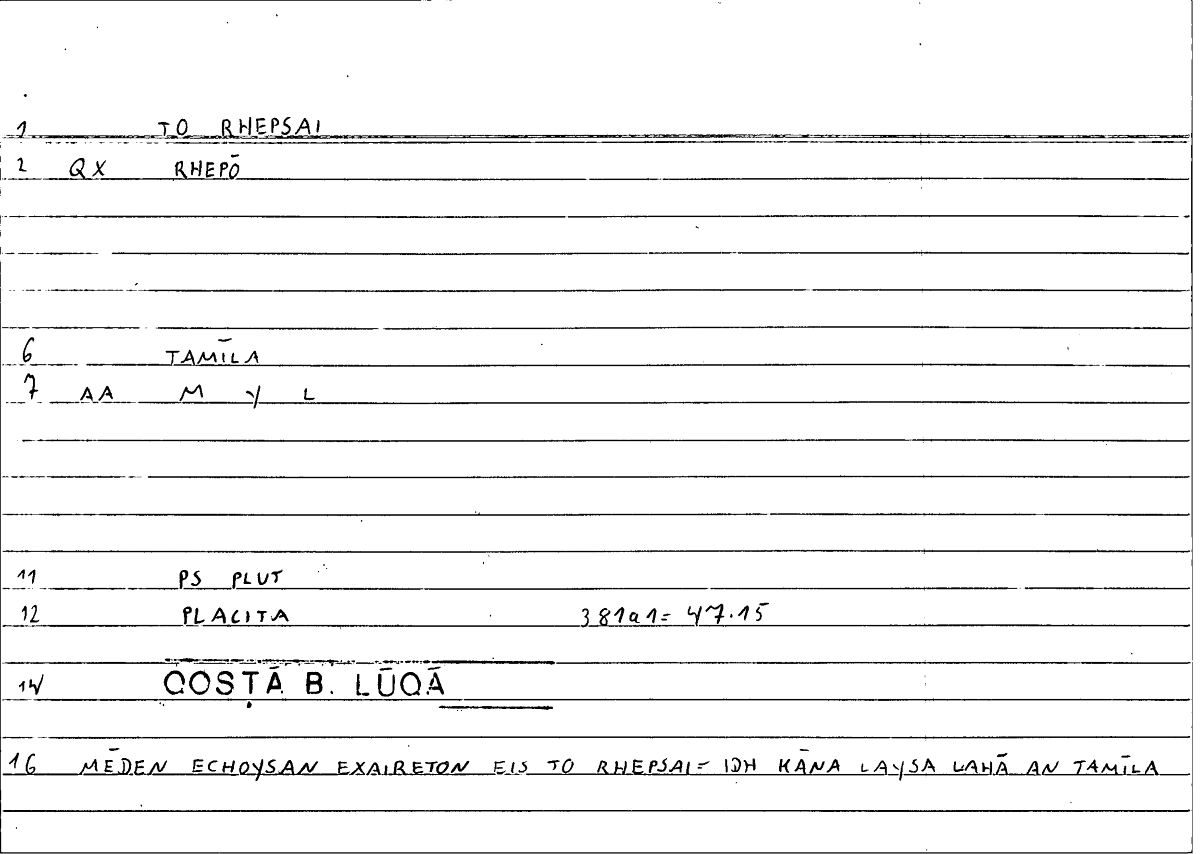 1 TO RHEPSAI
2 QX RHEPŌ
6 TAMĪLA
7 AA M Y L
11 PS PLUT
12 PLACITA 381a1= 47.15
14 QOSṬĀ B. LŪQĀ
16 MĒDEN ECHOYSAN EXAIRETON EIS TO RHEPSAI= IDH KĀNA LAYSA LAHĀ AN TAMĪLA